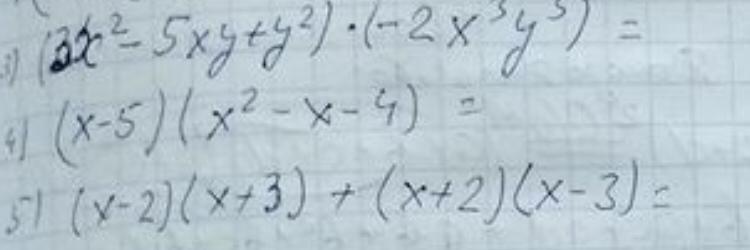 3) (3x² - 5xy + y²) · (-2x³y³) =
4) (x-5)(x² - x - 4) =
5) (x-2)(x+3) + (x+2)(x-3) =